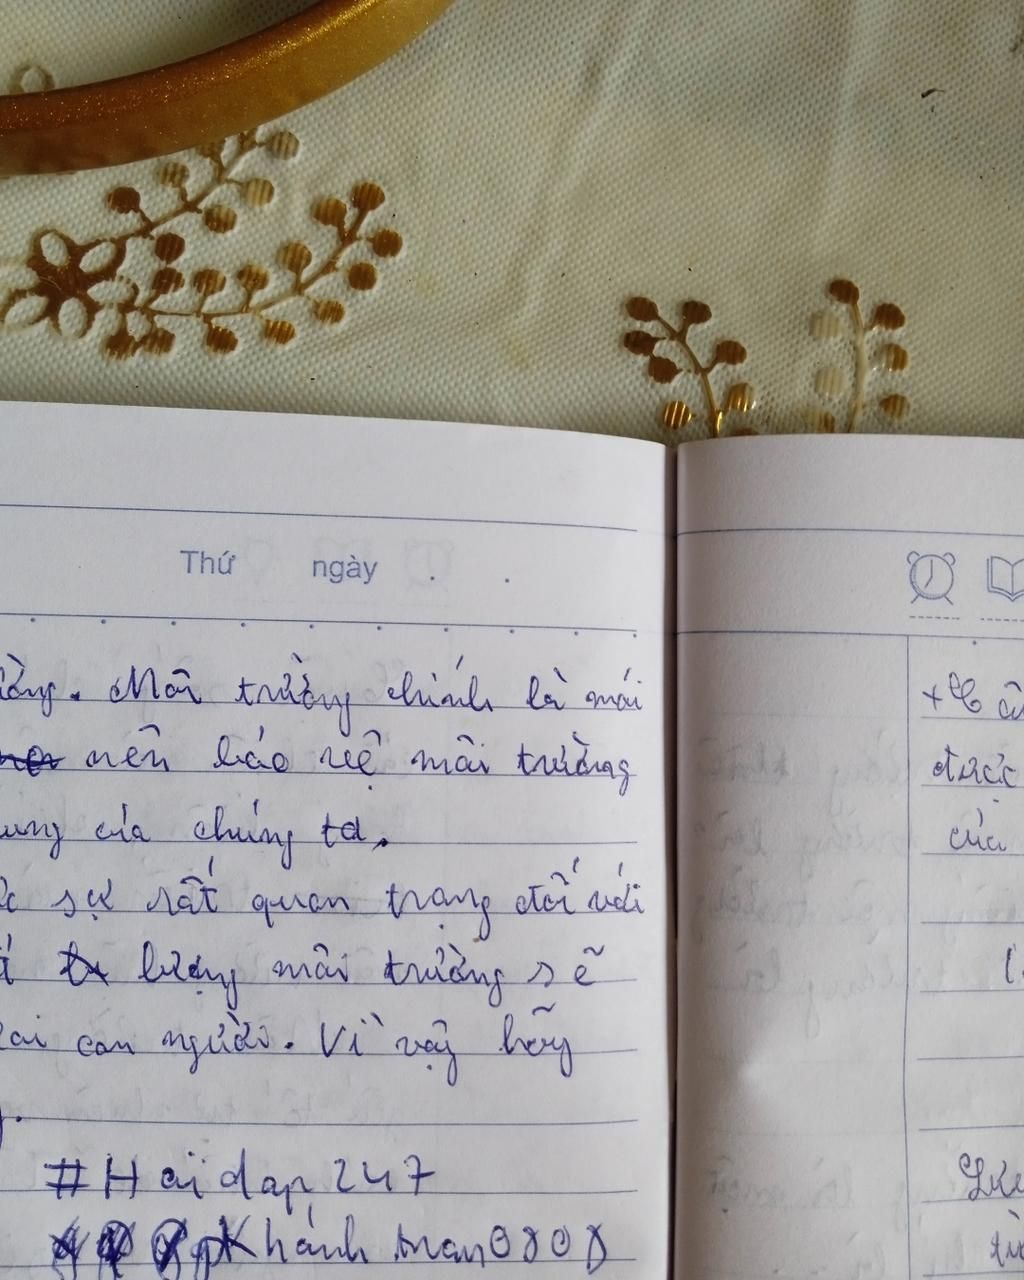 Thứ ngày . .
ường. Môi trường chính là mái
nên bảo vệ môi trường
ung của chúng ta.
sự rất quan trọng đối với
lượng môi trường sẽ
con người. Vì vậy hãy
#Hoidap247
Khánh tran0808
+
được
của